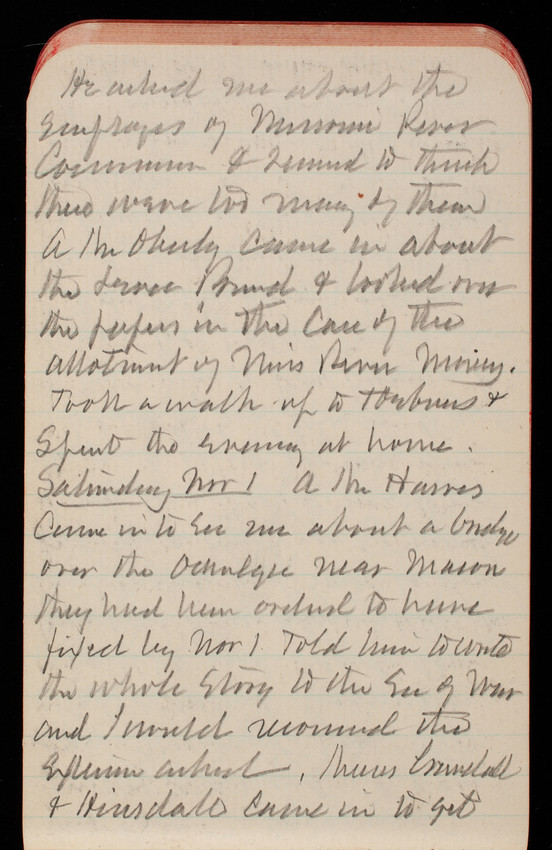 He asked me about the
Employes of Missouri River
Commission & seemed to think
there were too many of them
A Mr Oberly came in about
the & looked over
the papers in the Case of the
allotment of Miss River Money.
Took a walk up to &
Spent the evening at home.
Saturday Nov 1 A Mr Harris
Came in to See me about a bridge
over the Ocmulgee near Macon
they had been ordered to have
fixed by Nov 1 Told him to write
the whole Story to the Sec of War
and I would recommend the
asked, Crandall
& Hinsdale came in to get